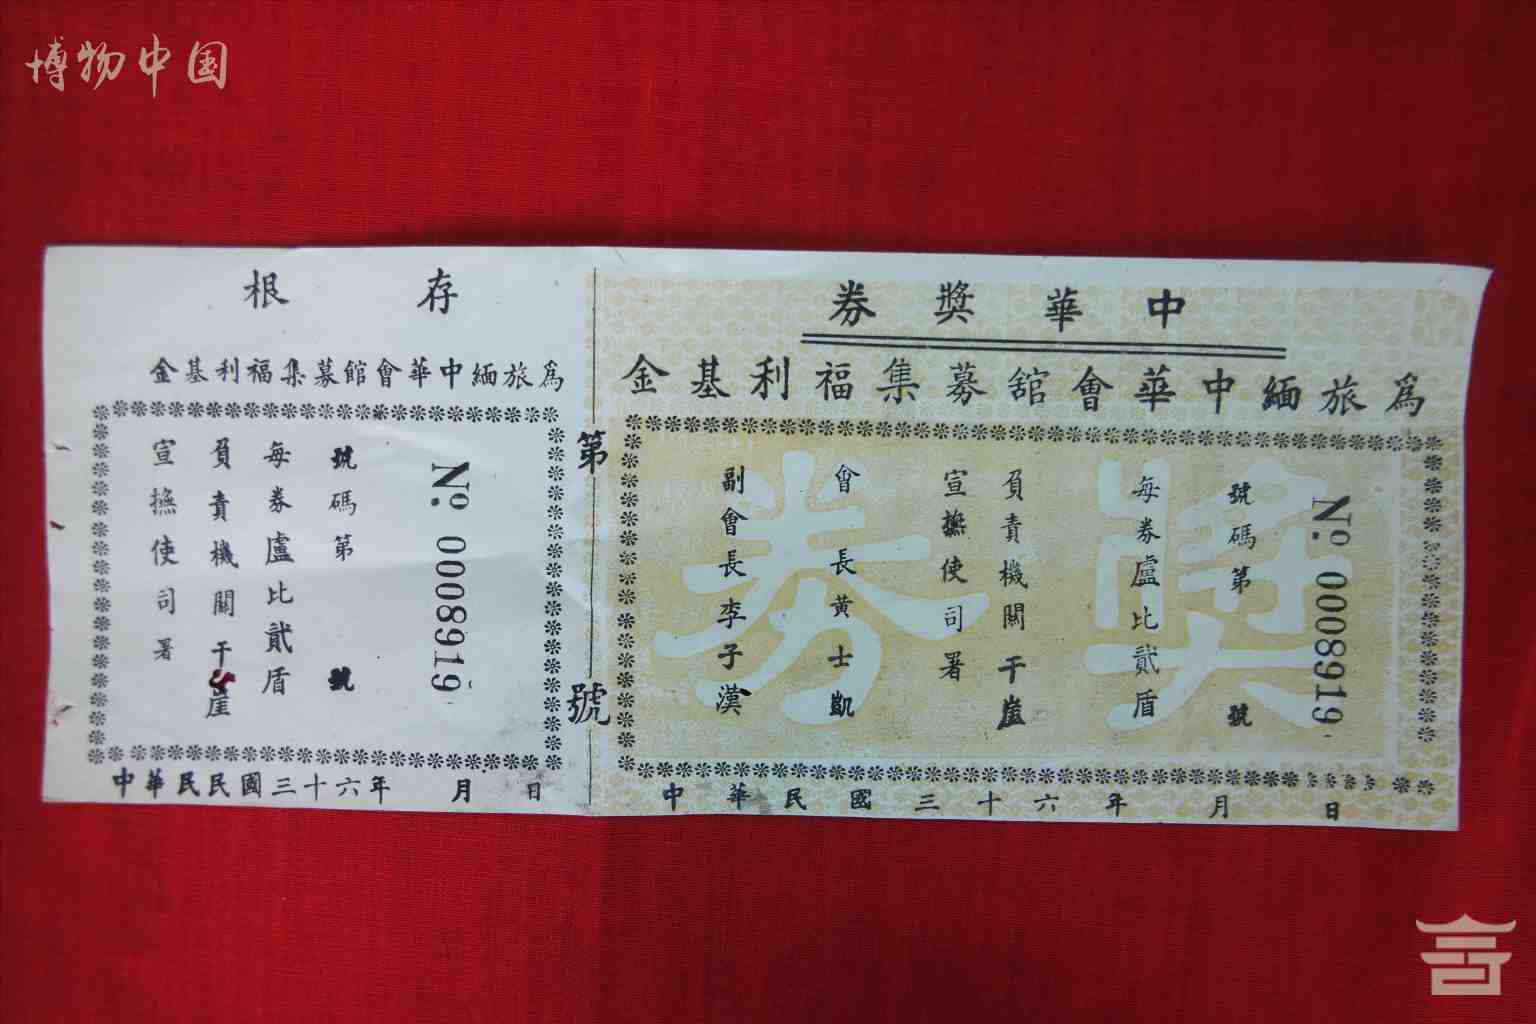 博物中国
中華獎券
為旅緬中華會館募集福利基金
獎券
No. 0008919
號碼第 號
每券盧比貳盾
負責機關 干崖
宣撫使司署
會長黄士凱
副會長李子漢
中華民國三十六年 月 日
第 號
存根
為旅緬中華會館募集福利基金
No. 0008919
號碼第 號
每券盧比貳盾
負責機關 干崖
宣撫使司署
中華民民國三十六年 月 日